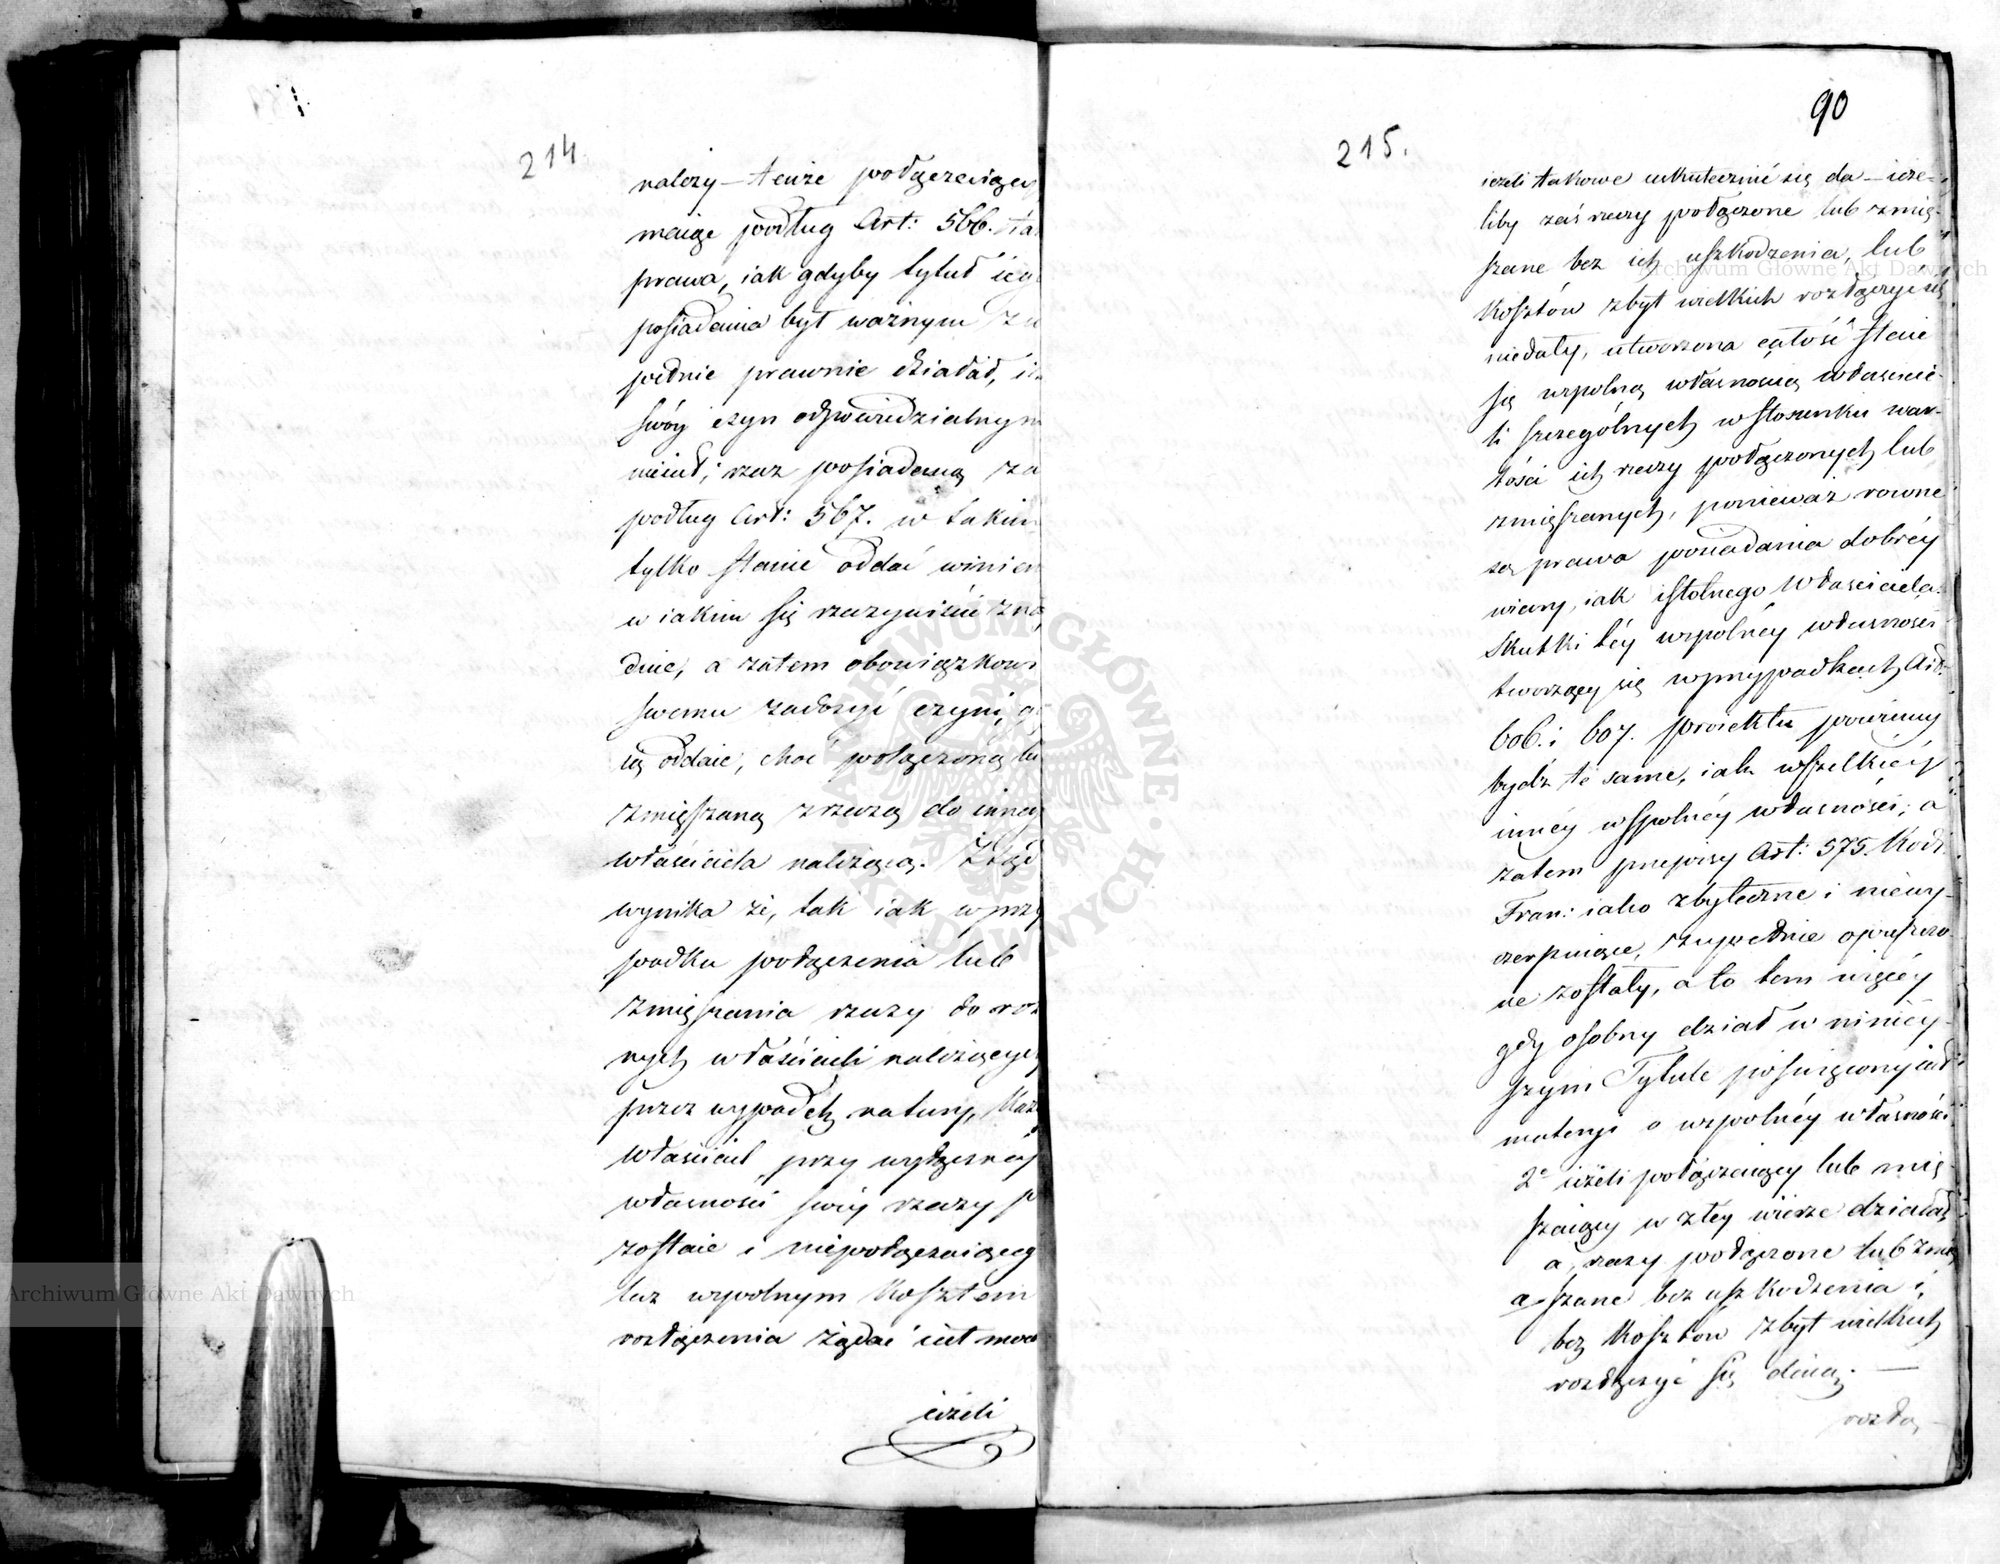 214
należy – tenże podłączaiący
maiąc podług Art: 566. 
prawa, iak gdyby tytuł iego
posiadania był ważnym
pełnie prawnie działał,
swóy czyn odpowiedzialnym
nieiest; rzecz posiadaną za
podług Art: 567. w takim
tylko stanie oddać winien
w iakim się rzeczywiście znay
duie, a zatem obowiązkowi
swemu zadosyć czyni, gdy
ią oddaie, choć połączoną lu
zmięszaną z rzeczą do innego
właściciela należącą. Ztąd
wynika że, tak iak w przy
padku podłączenia lub
zmięszania rzeczy do roz
nych właścicieli należących
przez wypadek natury, każ
właściciel przy wyłączney
własności swéy rzeczy p
zostaie i niepodłączaiącego
też wspólnym kosztem
rozłączenia żądać iest mocen
ieżeli
90
215.
ieżeli takowe uskutecznić się da – ieże=
liby zaś rzeczy podłączone lub zmię-
szane bez ich uszkodzenia, lub
kosztów zbyt wielkich rozłączyć się
niedały, utworzona całość stanie
się wspólną własnością właścicie-
li szczególnych w stosunku war-
tości ich rzeczy podłączonych lub
zmięszanych, ponieważ rowne
są prawa posiadania dobréy
wiary, iak istotnego Właściciela.
Skutki téy wspólnéy własności
tworzącéy się w przypadkach Art:
606. i 607. proiektu powinny
bydź te same, iak wszelkiéy
innéy wspólnéy własności, a
zatem przepisy Art: 575. Kod:
Fran: iako zbyteczne i niewy-
czerpuiące, zupełnie opuszczo-
ne zostały, a to tem więcéy
gdy osobny dział w niniey-
szym Tytule poświęcony iest
materyi o wspólnéy własności
2e ieżeli podłączaiący lub mię-
szaiący w złéy wierze działał
a, rzeczy podłączone lub zmię
a szane bez uszkodzenia i
bez kosztow zbyt wielkich
rozłączyć się daią. —
rozłą
Archiwum Główne Akt Dawnych
Archiwum Główne Akt Dawnych
ARCHIWUM GŁÓWNE AKT DAWNYCH